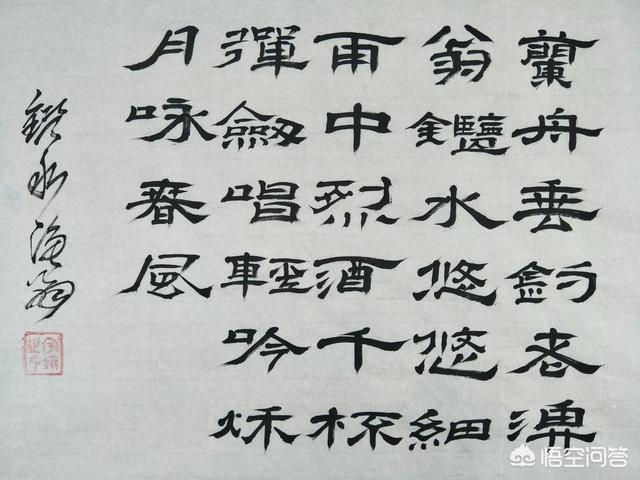 蘭舟垂釣老漁
翁鑑水悠悠細
雨中烈酒千杯
彈劍唱輕吟秌
月咏春風
鑑水渔翁
悟空问答